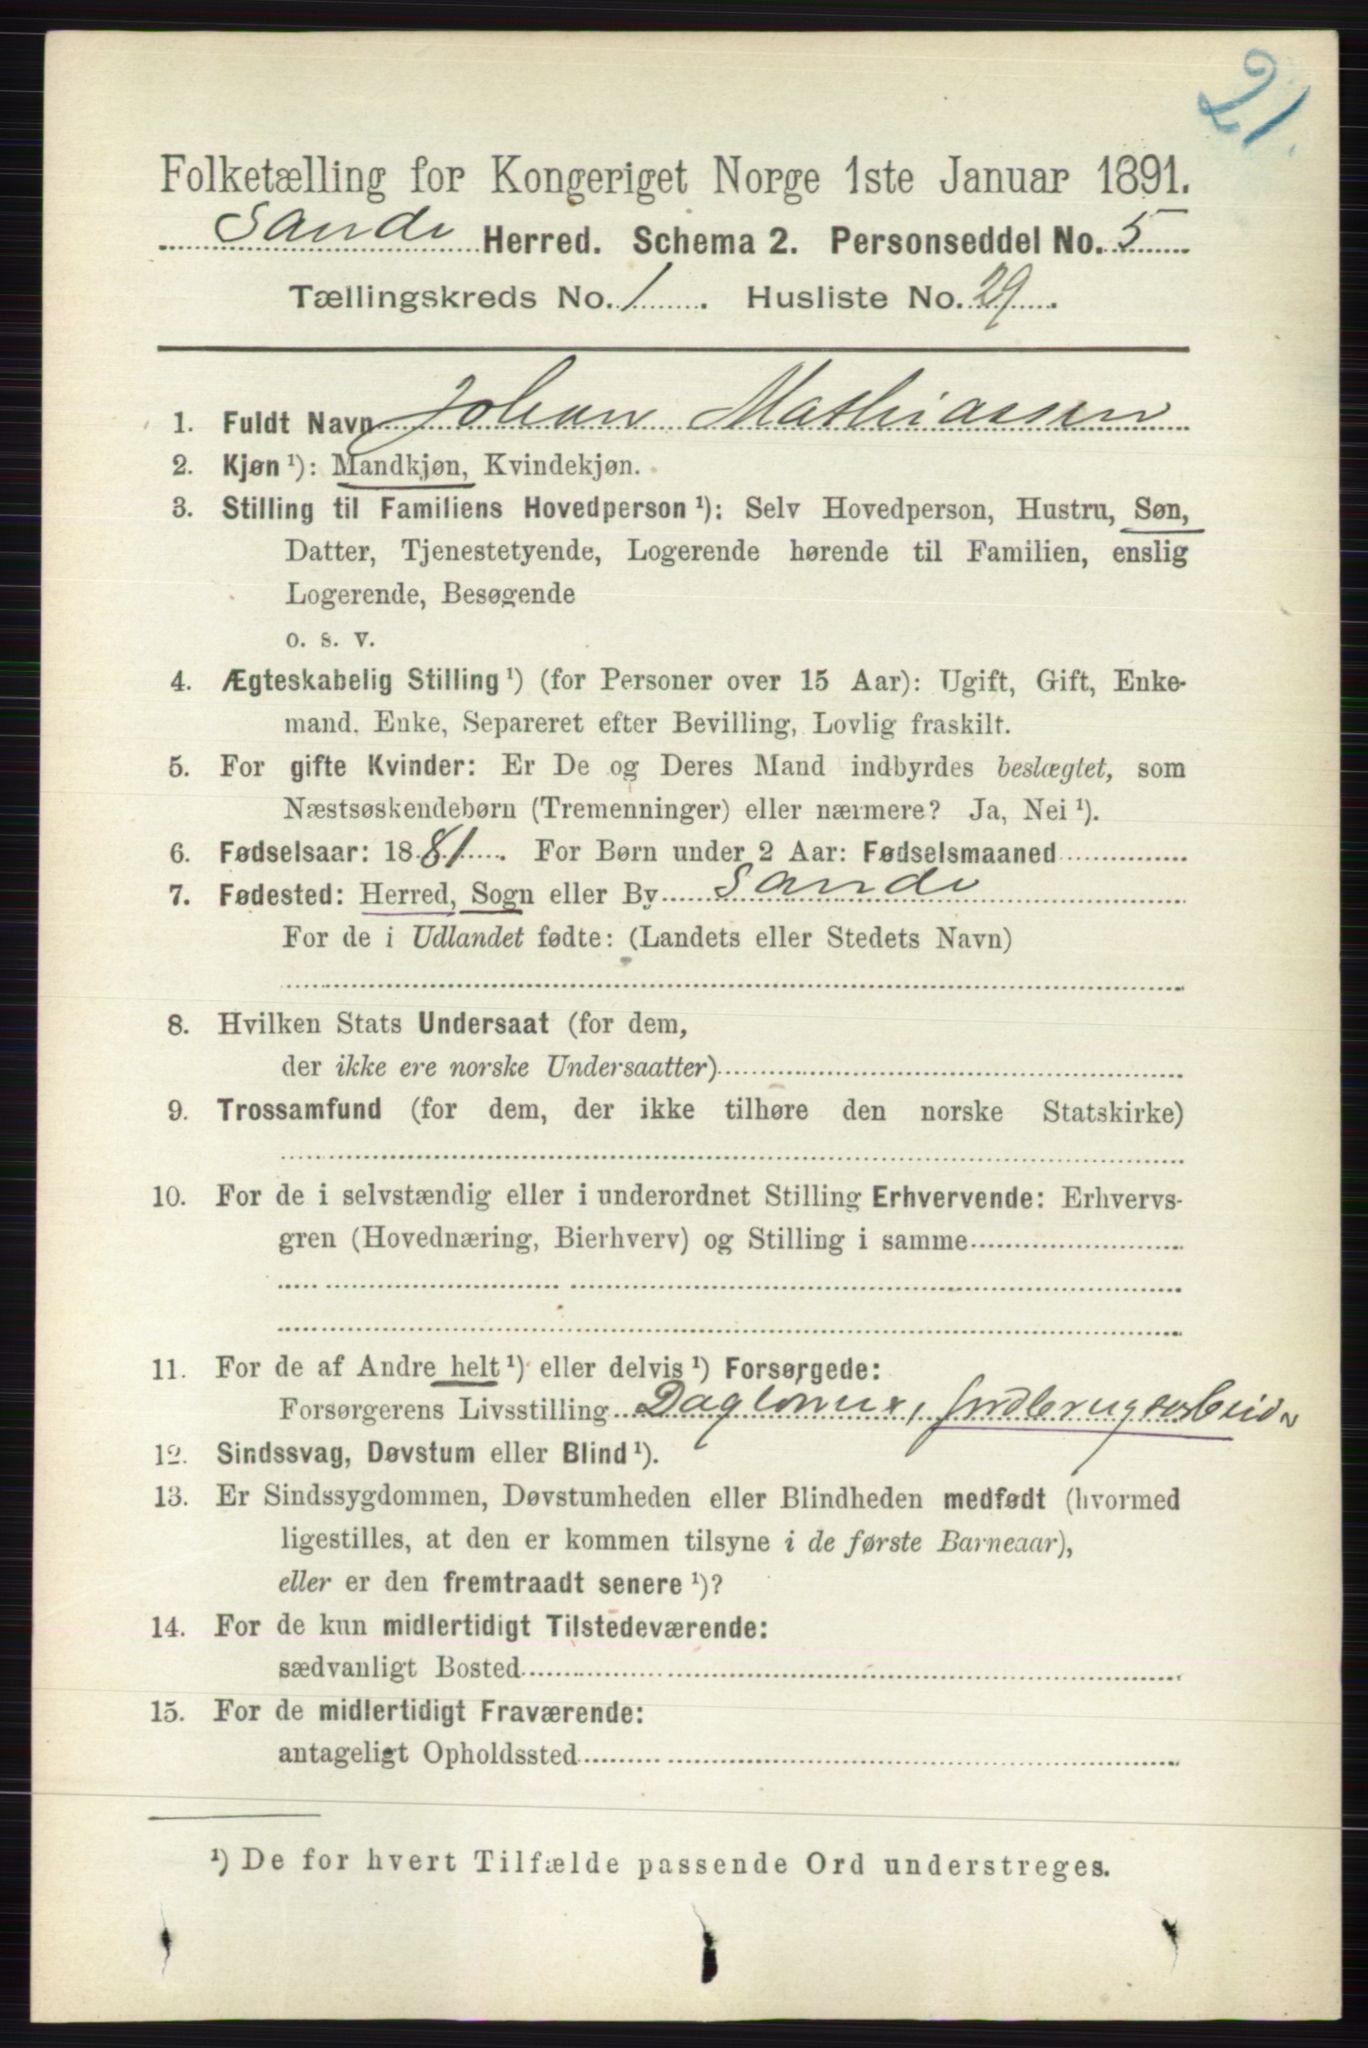 21.
Folketælling for Kongeriget Norge 1ste Januar 1891.
Sande Herred. Schema 2. Personseddel No. 5
Tællingskreds No. 1 . Husliste No. 29 .
1. Fuldt Navn Johan Mathiassen
2. Kjøn ¹): Mandkjøn, Kvindekjøn.
3. Stilling til Familiens Hovedperson ¹): Selv Hovedperson, Hustru, Søn,
Datter, Tjenestetyende, Logerende hørende til Familien, enslig
Logerende, Besøgende
o. s. v.
4. Ægteskabelig Stilling ¹) (for Personer over 15 Aar): Ugift, Gift, Enke-
mand, Enke, Separeret efter Bevilling, Lovlig fraskilt.
5. For gifte Kvinder: Er De og Deres Mand indbyrdes beslægtet, som
Næstsøskendebørn (Tremenninger) eller nærmere? Ja, Nei ¹).
6. Fødselsaar: 1881. For Børn under 2 Aar: Fødselsmaaned
7. Fødested: Herred, Sogn eller By Sande
For de i Udlandet fødte: (Landets eller Stedets Navn)
8. Hvilken Stats Undersaat (for dem,
der ikke ere norske Undersaatter)
9. Trossamfund (for dem, der ikke tilhøre den norske Statskirke)
10. For de i selvstændig eller i underordnet Stilling Erhvervende: Erhvervs-
gren (Hovednæring, Bierhverv) og Stilling i samme
11. For de af Andre helt ¹) eller delvis ¹) Forsørgede:
Forsørgerens Livsstilling Daglønner, Jordbrugsarbeider
12. Sindssvag, Døvstum eller Blind ¹).
13. Er Sindssygdommen, Døvstumheden eller Blindheden medfødt (hvormed
ligestilles, at den er kommen tilsyne i de første Barneaar),
eller er den fremtraadt senere ¹)?
14. For de kun midlertidigt Tilstedeværende:
sædvanligt Bosted
15. For de midlertidigt Fraværende:
antageligt Opholdssted
¹) De for hvert Tilfælde passende Ord understreges.